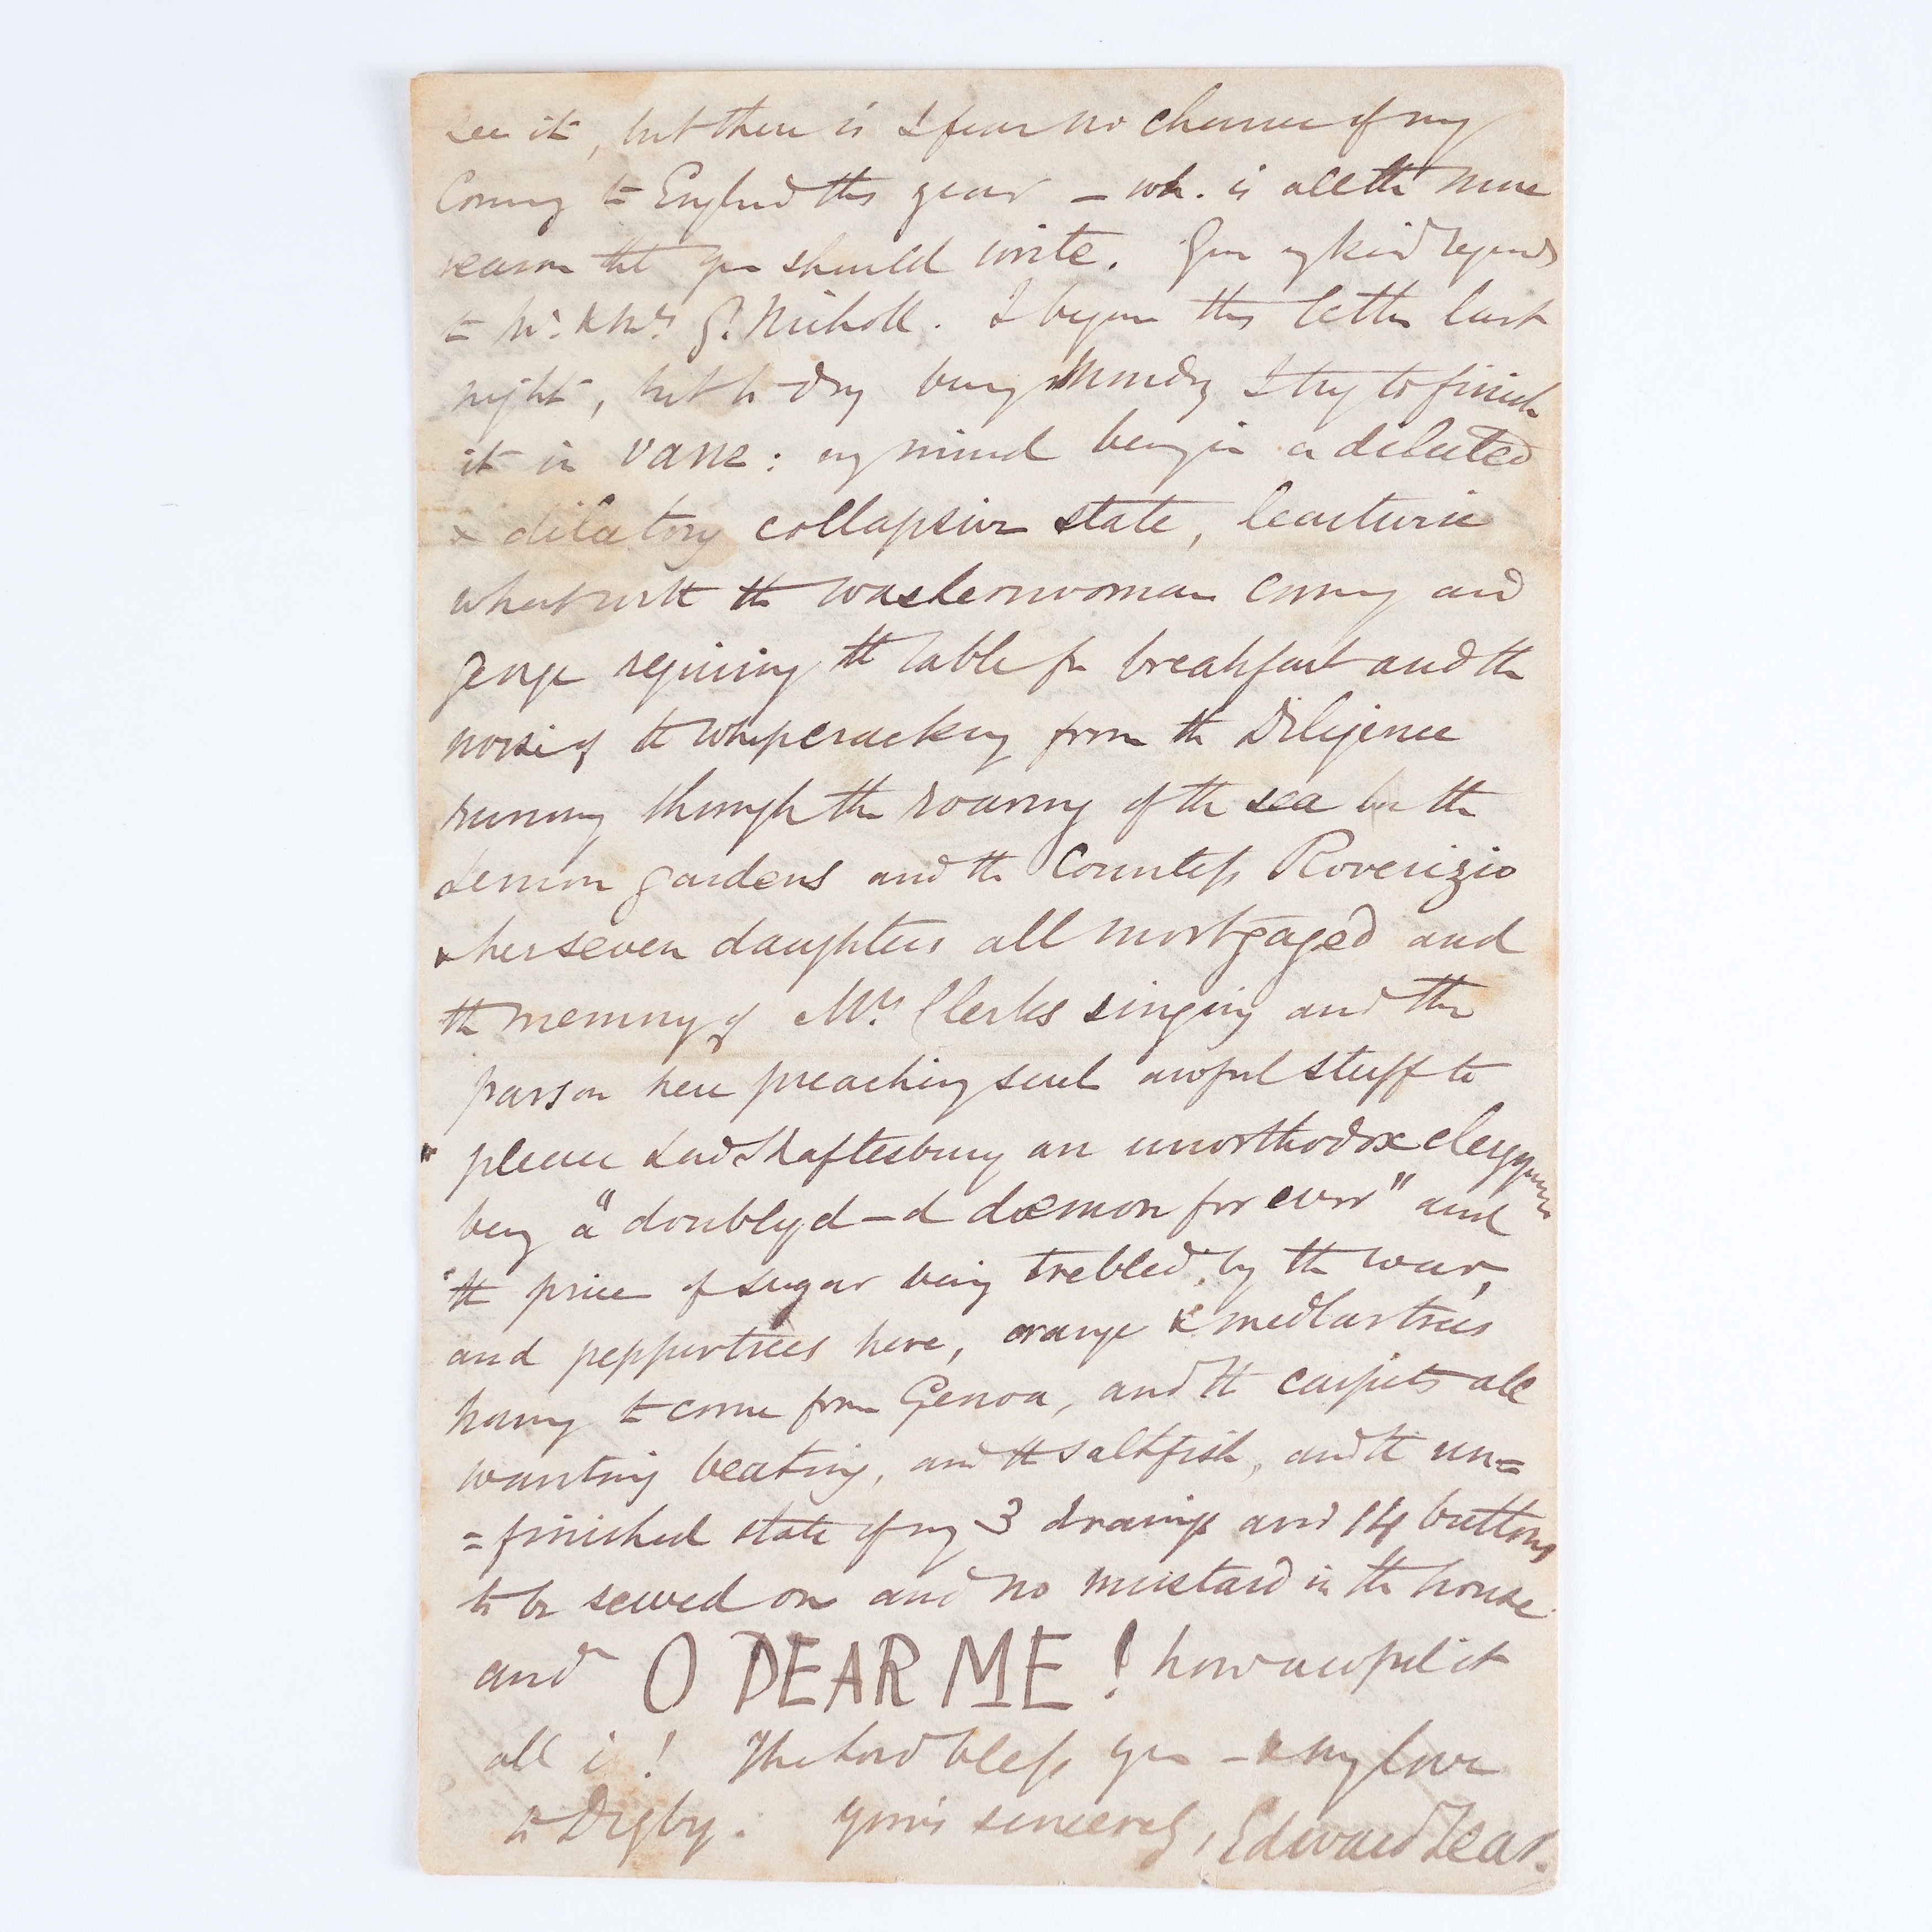 see it, but there is I fear no chance of my
coming to England this year – wh. is all the more
reason that you should write. Give my kind regards
to Mr. & Mrs. G. Nicholl. I began this letter last
night, but to-day being Monday I try to finish
it in vane: my mind being in a diluted
& dilatory collapsive state, leastwise
what with the washerwoman coming and
George requiring the table for breakfast and the
noise of the whipcracking from the Diligence
running through the roaring of the sea in the
Lemon gardens and the Countess Roverizio
& her seven daughters all mortgaged and
the memory of Mrs. Clerks singing and the
parson here preaching such awful stuff to
please Lord Shaftesbury an unorthodox clergyman
being "a doubly d–d dæmon for ever" and
the price of sugar being trebled by the war,
and peppertrees here, orange & medlartrees
having to come from Genoa, and the carpets all
wanting beating, and the saltfish, and the un=
=finished state of my 3 drawings and 14 buttons
to be sewed on and no mustard in the house
and O DEAR ME! how awful it
all is! The Lord bless you – & my love
to Digby. Yours sincerely, Edward Lear.